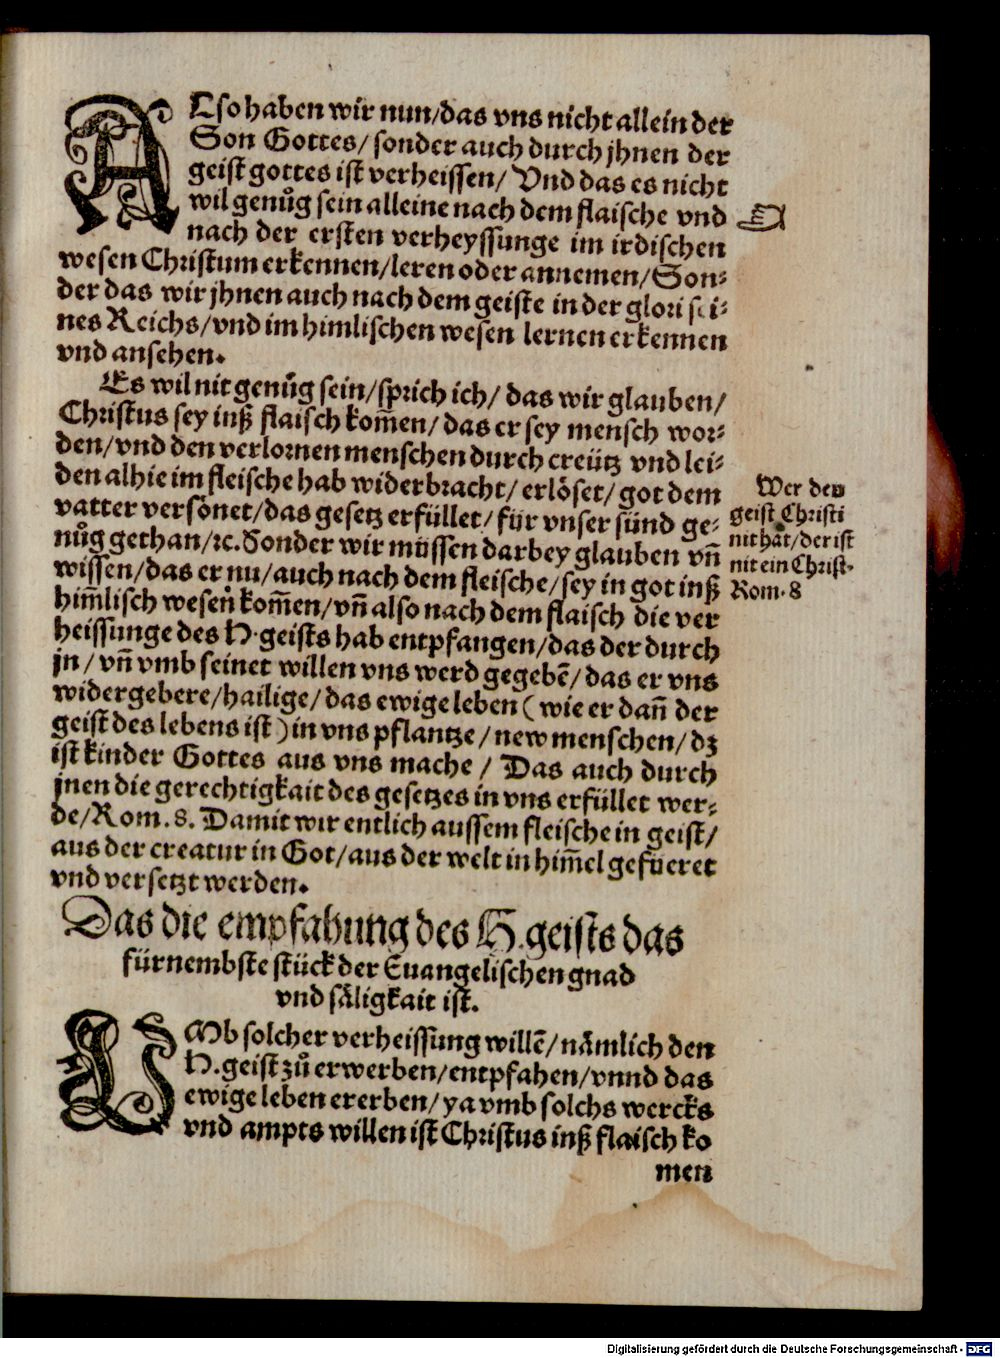 ALso haben wir nun/das vns nicht allein der
Son Gottes/ sonder auch durch jhnen der
geist gottes ist verheissen/ Vnd das es nicht
wil genůg sein alleine nach dem flaische vnd
nach der ersten verheyssunge im irdischen
wesen Christum erkennen/leren oder annemen/Son⸗
der das wir jhnen auch nach dem geiste in der glori sei⸗
nes Reichs/vnd im himlischen wesen lernen erkennen
vnd ansehen.
Es wil nit genůg sein/sprich ich/ das wir glauben/
Christus sey inß flaisch kom̄en/ das er sey mensch wor⸗
den/vnd den verlornen menschen durch creütz vnd lei⸗
den alhie im fleische hab widerbracht/ erlöset/ got dem
vatter versönet/das gesetz erfüllet/ für vnser sünd ge⸗
nůg gethan/ꝛc. Sonder wir müssen darbey glauben vn̄
wissen/das er nu/auch nach dem fleische/sey in got inß
him̄lisch wesen kom̄en/vn̄ also nach dem flaisch die ver
heissunge des H. geists hab entpfangen/das der durch
jn/ vn̄ vmb seinet willen vns werd gegebē/ das er vns
widergebere/hailige/ das ewige leben ( wie er dan̄ der
geist des lebens ist ) in vns pflantze/ new menschen/ dz
ist kinder Gottes aus vns mache / Das auch durch
jnen die gerechtigkait des gesetzes in vns erfüllet wer⸗
de/Rom. 8. Damit wir entlich aussem fleische in geist/
aus der creatur in Got/aus der welt in him̄el gefüeret
vnd versetzt werden.
Wer den
geist Christi
nit hat/der ist
nit ein Christ.
Rom. 8
Das die empfahung des H. geists das
fürnembste stück der Euangelischen gnad
vnd säligkait ist.
VMb solcher verheissung willē/ nämlich den
H. geist zů erwerben/entpfahen/vnnd das
ewige leben ererben/ ya vmb solchs wercks
vnd ampts willen ist Christus inß flaisch ko
men
Digitalisierung gefördert durch die Deutsche Forschungsgemeinschaft - DFG